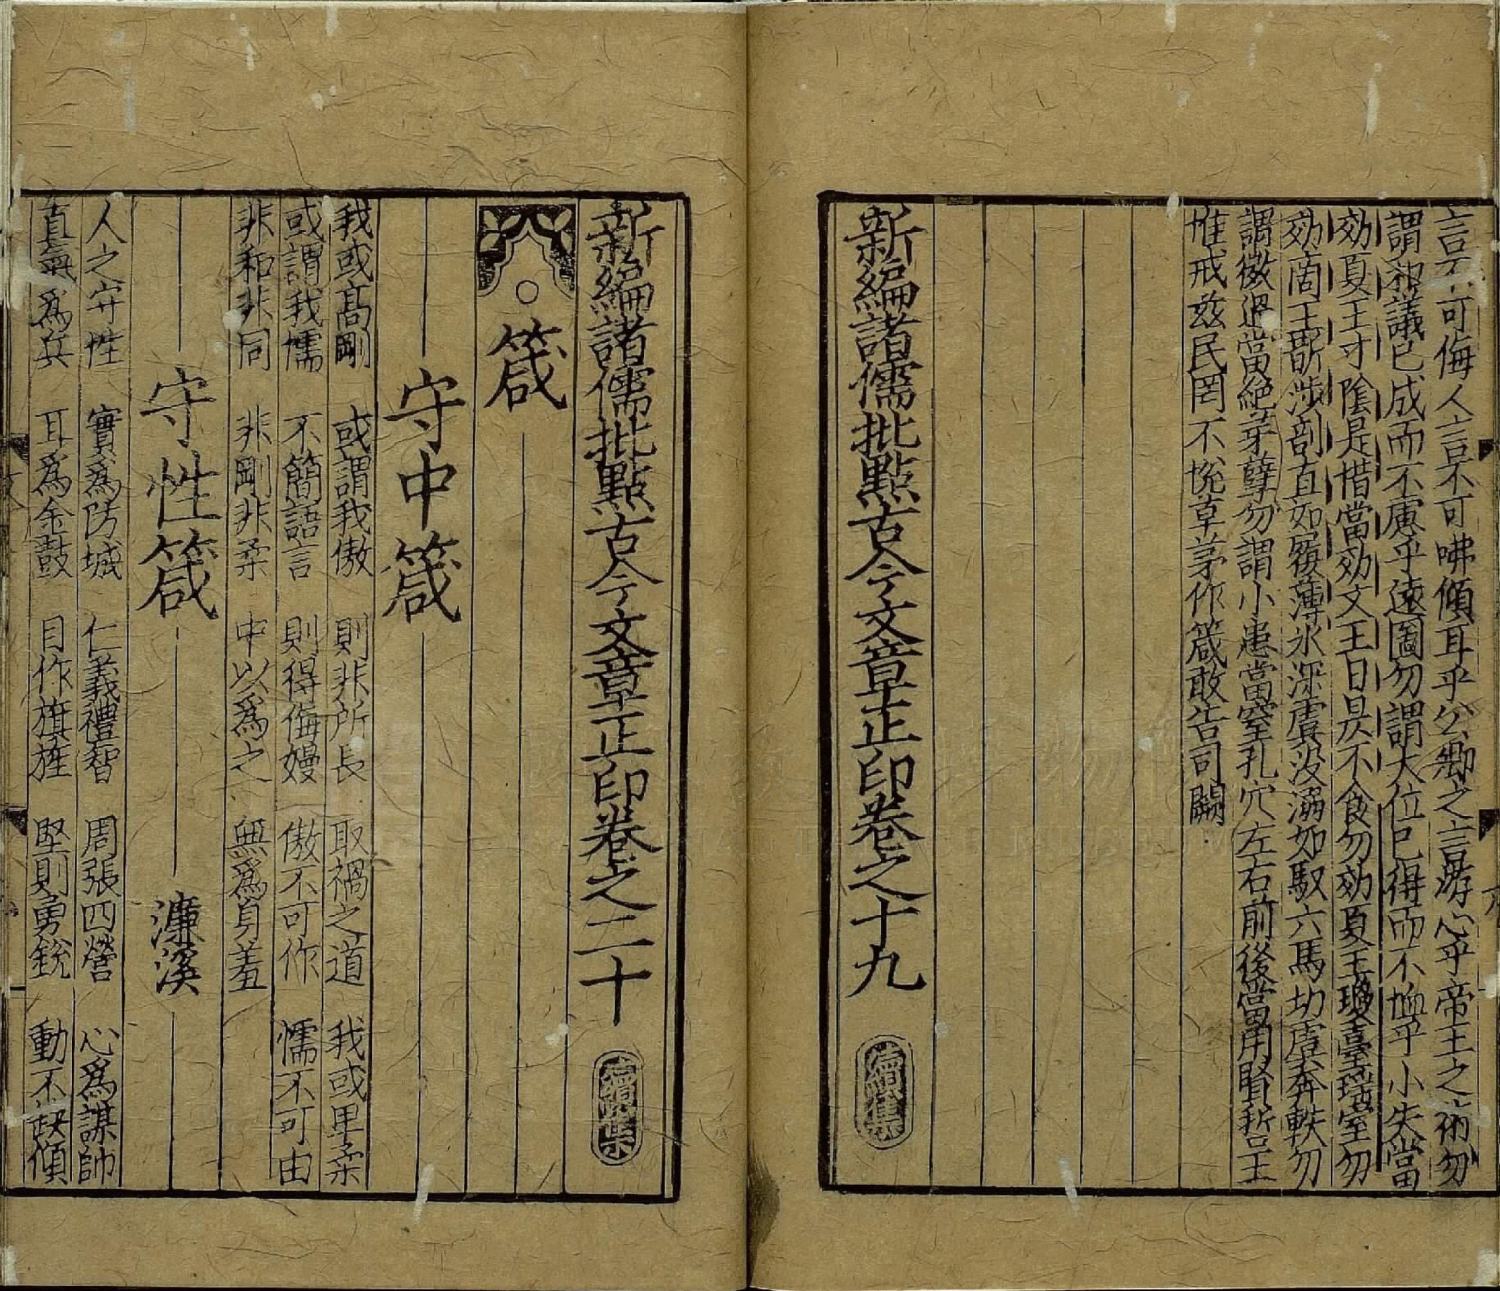 言不可侮人言不可咈傾耳乎公卿之言游心乎帝王之術勿
謂邪議已成而不慮乎遠圖勿謂大位已得而不恤乎小失當
効夏王寸陰是惜當効文王日昃不食勿効夏王璇臺瑤室勿
効商王斮涉剖直如履薄氷深虞没溺如馭六馬切虞奔軼勿
謂微過當絶芽孽勿謂小患當窒孔穴左右前後當用賢哲王
惟戒兹民罔不悅草茅作箴敢告司闕
新編諸儒批點古今文章正印卷之十九
續集
新編諸儒批點古今文章正印卷之二十
續集
箴
守中箴
我或高剛 或謂我傲 則非所長 取禍之道 我或卑柔
或謂我懦 不簡語言 則得侮嫚 傲不可作 懦不可由
非和非同 非剛非柔 中以爲之 無爲身羞
守性箴 濂溪
人之守性 實爲防城 仁義禮智 周張四營 心爲謀帥
直氣爲兵 耳爲金鼓 目作旗旌 堅則勇銳 動不敧傾